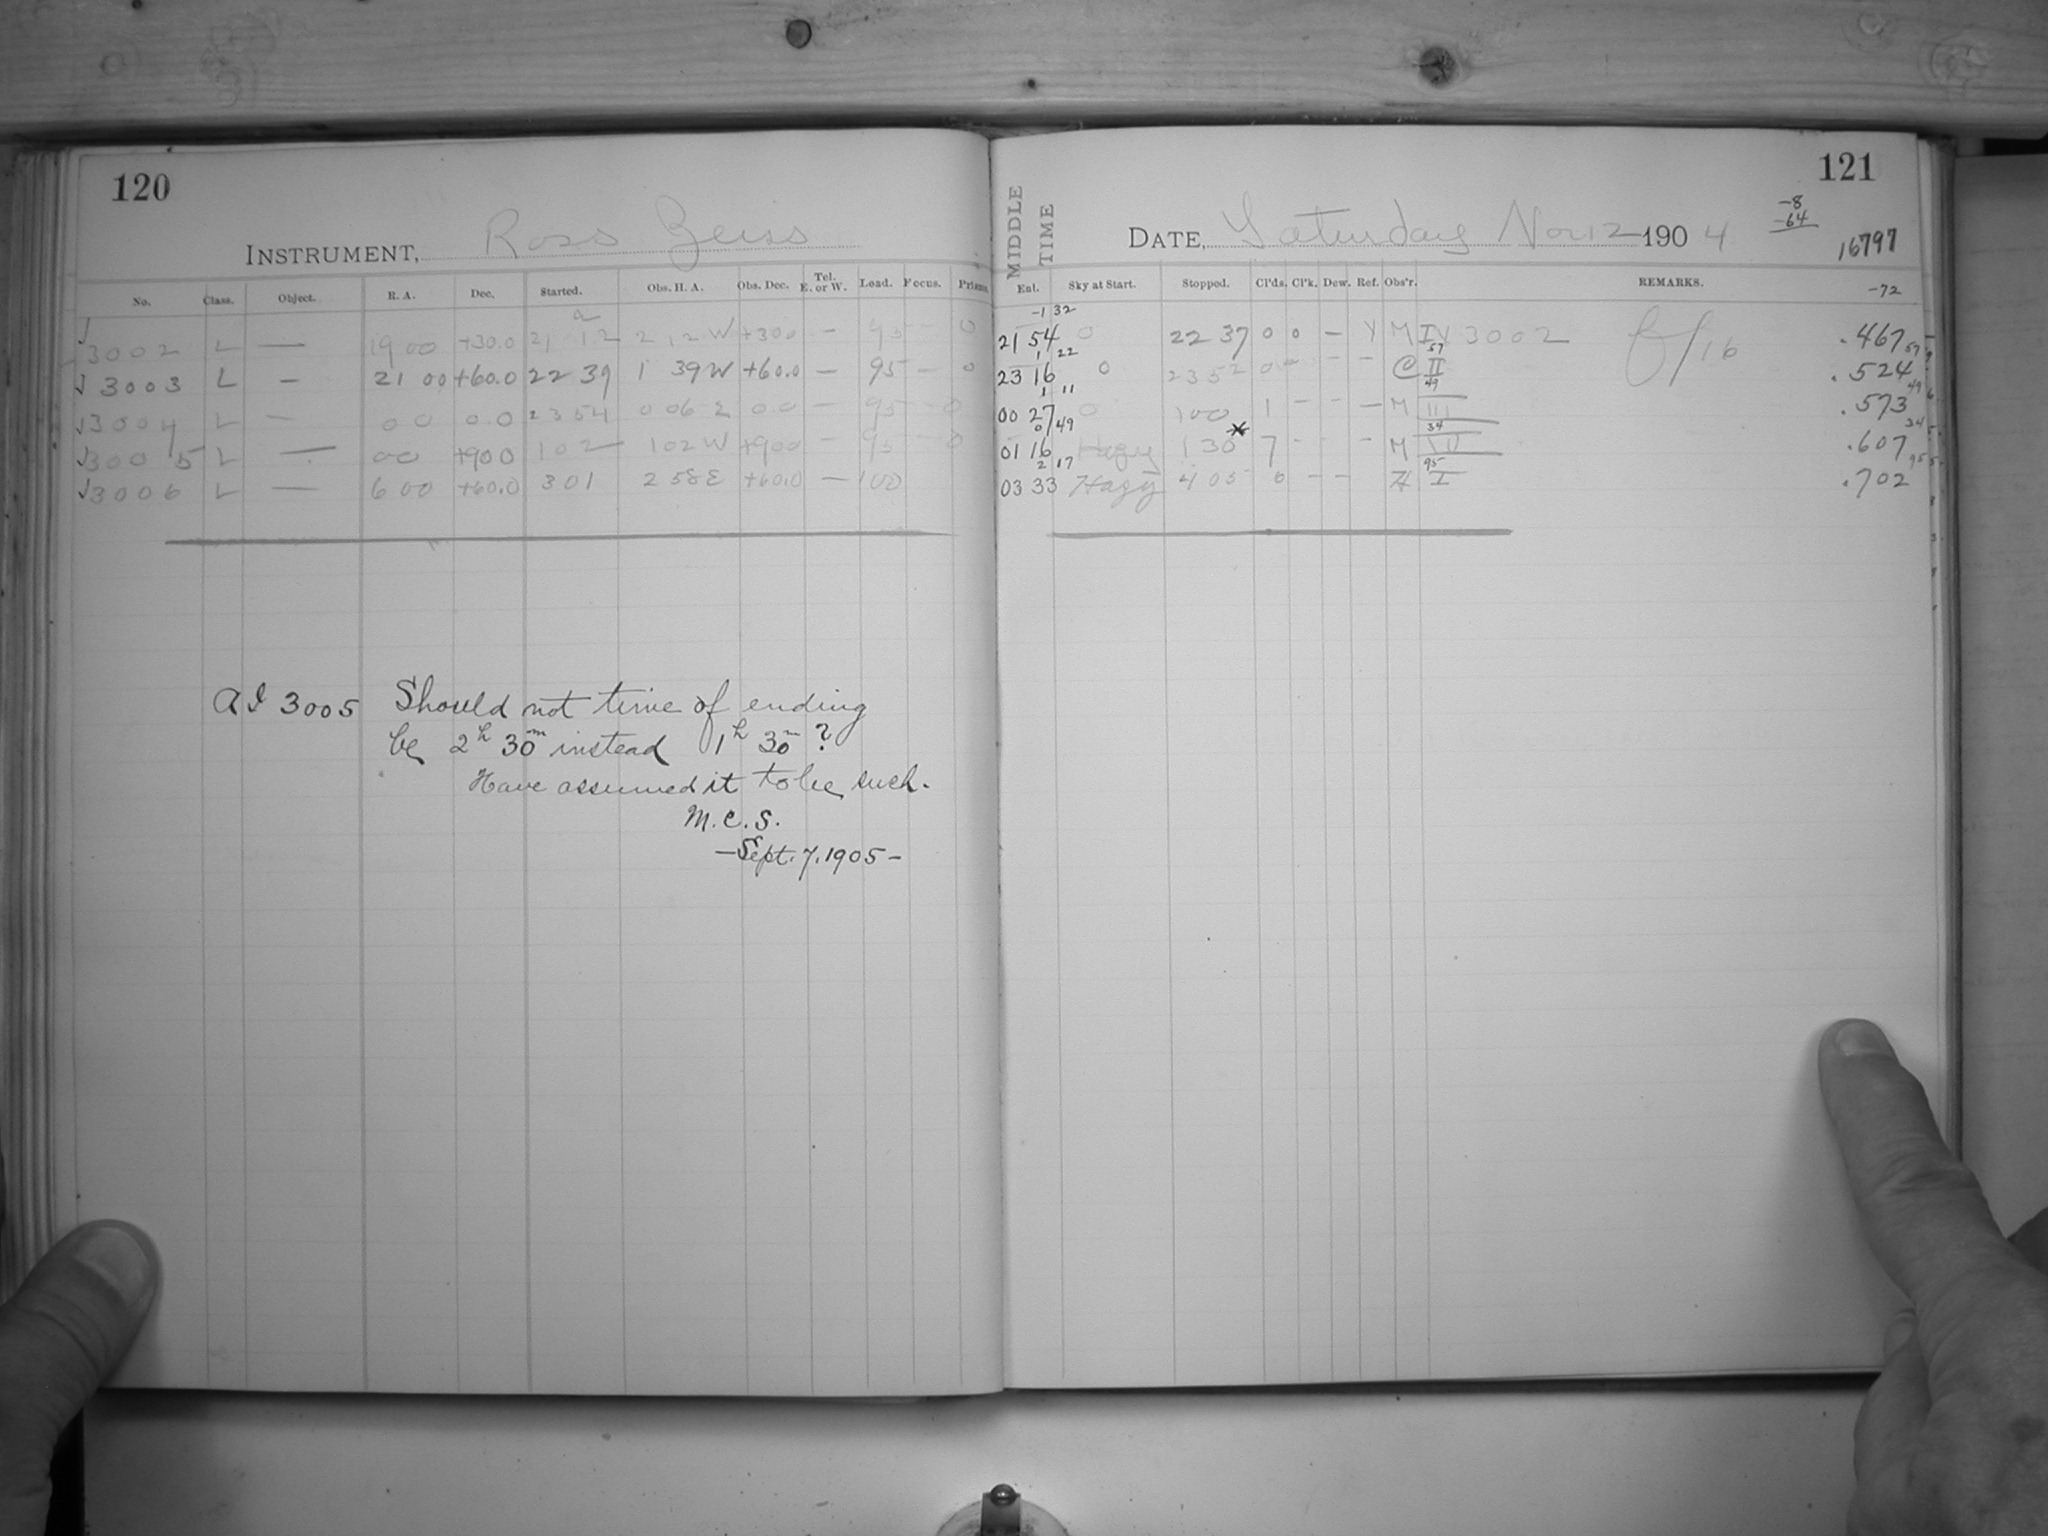 120
INSTRUMENT, Ross Zeiss
No. Class. Object. R. A. Dec. Started. Obs. H. A. Obs. Dec. Tel. E. or W. Lead. Focus. Prisms.
√ 3002 L — 19 00 +30.0 21 12 2 12 W +30.0 — 95 — 0
√ 3003 L — 21 00 +60.0 22 39 1 39 W +60.0 — 95 — 0
√ 3004 L — 0 0 0.0 23 54 0 06 E 0.0 — 95 — 0
√ 3005 L — 0 0 +90.0 1 02 1 02 W +90.0 — 95 — 0
√ 3006 L — 6 00 +60.0 3 01 2 58 E +60.0 — 100
3005 Should not time of ending
be 2h 30m instead of 1h 30m ?
Have assumed it to be such.
M.C.S.
— Sept. 7, 1905 —
121
MIDDLE TIME
DATE, Saturday Nov 12 1904
-8
-64
16797
-72
Eal. Sky at Start. Stopped. Cl'ds. Cl'k. Dew. Ref. Obs'r. REMARKS.
-1 32
21 54 0 22 37 0 0 — Y M IV 3002 f/16 .467
1 22 57 57
23 16 0 23 52 0 — — — C II .524
1 11 49 49
00 27 0 1 00 1 — — — M III .573
0 49 34 34
01 16 Hazy 1 30 * 7 — — — M IV .607
2 17 95 95
03 33 Hazy 4 05 0 — — H I .702